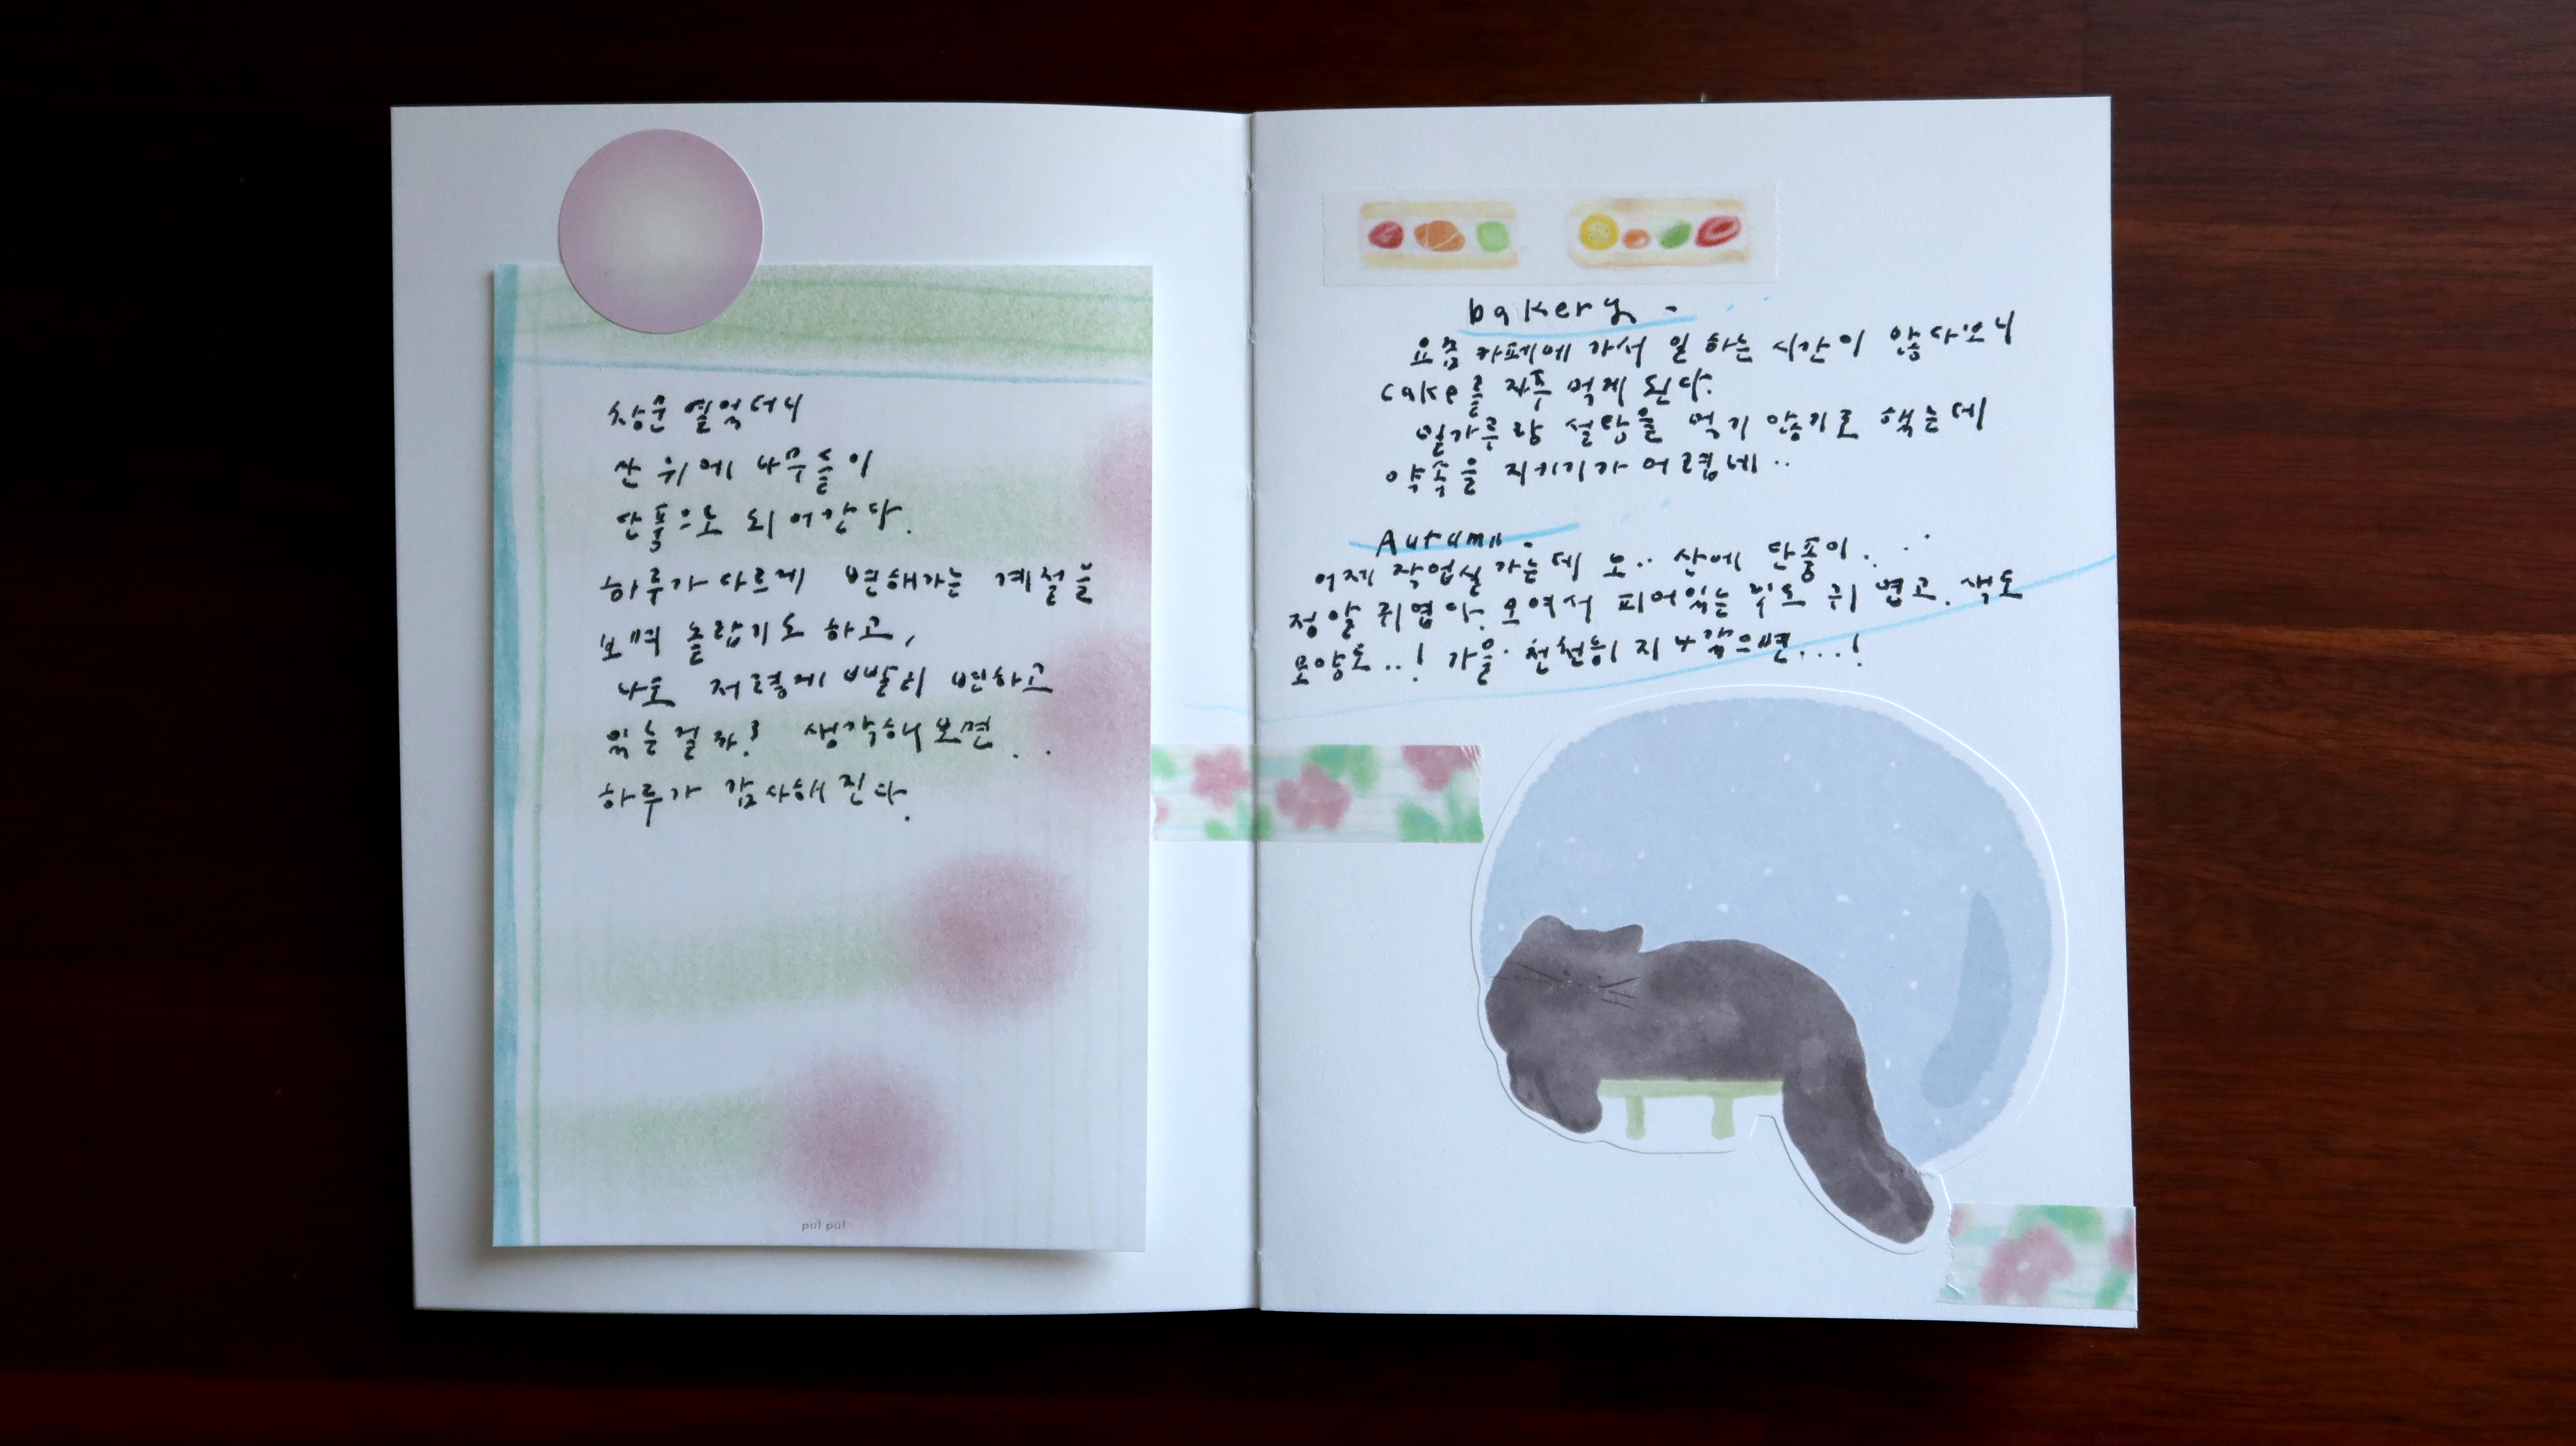 창문 열었더니
산 위에 나무들이
단풍으로 되어간다.
하루가 다르게 변해가는 계절을
보며 놀랍기도 하고,
나도 저렇게 빨리 변하고
있는걸까? 생각해보면..
하루가 감사해진다.
pul pul
bakery -
요즘 카페에 가서 일 하는 시간이 많다보니
cake를 자주 먹게 된다.
밀가루랑 설탕을 먹기 않기로 했는데
약속을 지키기가 어렵네..
Autumn.
어제 작업실 가는데 오.. 산에 단풍이...
정말 귀엽다. 모여서 피어있는 귀엽고. 색도
모양도..! 가을. 천천히 지나갔으면...!